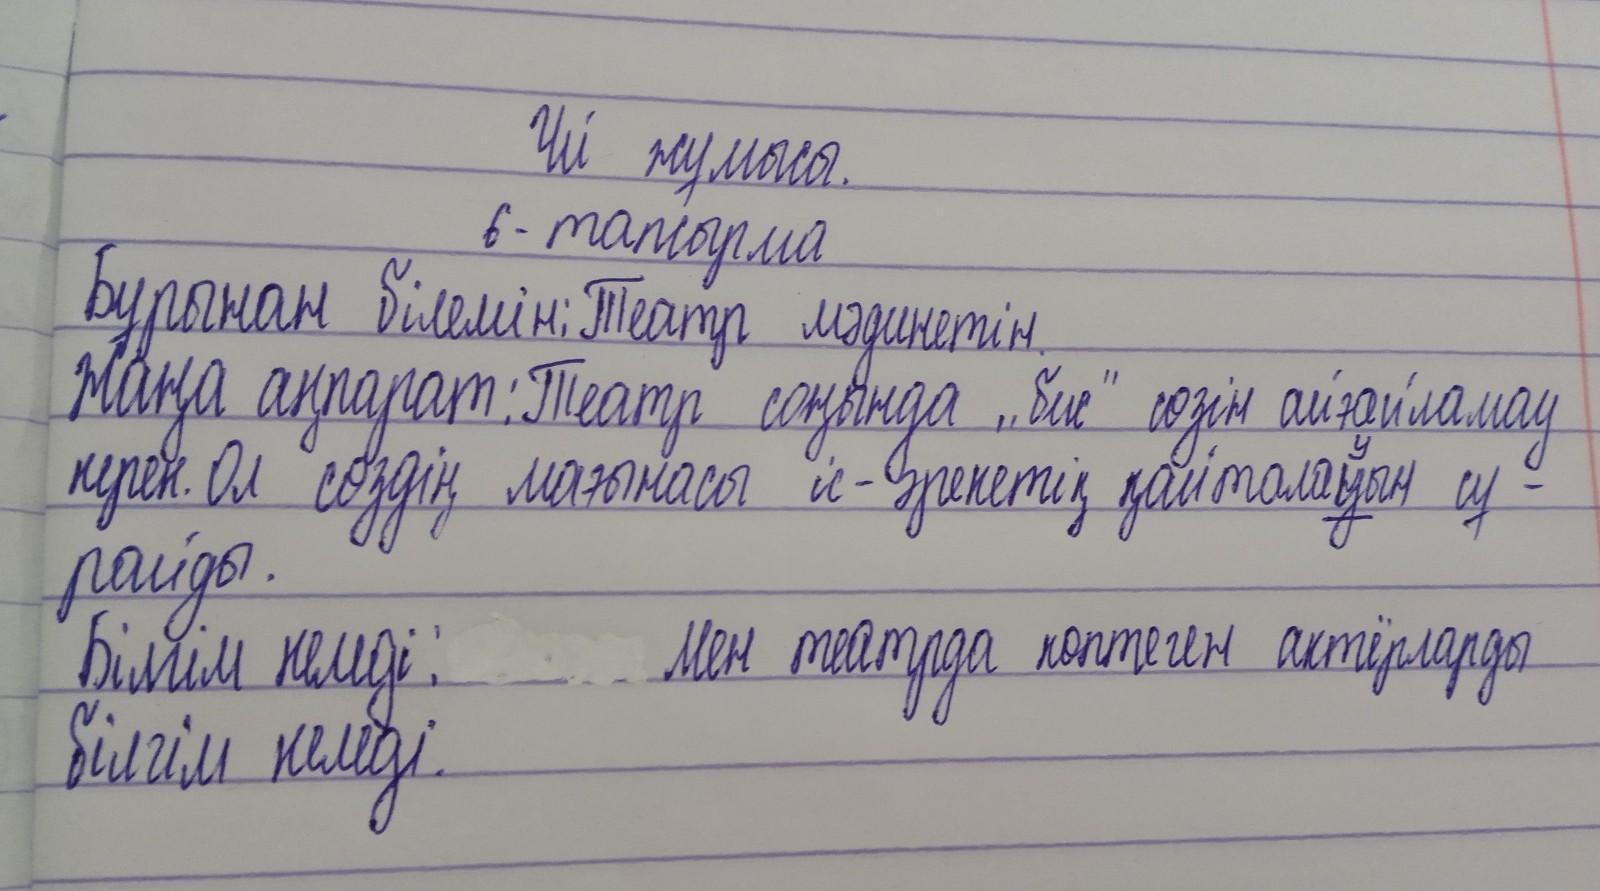 Үй жұмысы.
6-тапсырма
Бұрынан білемін: Театр мәдинетін.
Жаңа ақпарат: Театр соңында „бис" сөзін айғайламау
керек. Ол сөздің мағынасы іс-әрекетің қайталауын сұ-
райды.
Білгім келеді: Мен театрда көптеген актёрларды
білгім келеді.